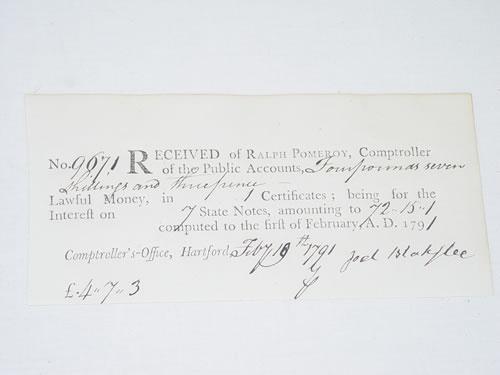 No. 9671 RECEIVED of RALPH POMEROY, Comptroller
of the Public Accounts, Four pounds seven
shillings and three pence
Lawful Money, in 1 Certificates; being for the
Interest on 7 State Notes, amounting to 72-15-1
computed to the first of February A. D. 1791
Comptroller's-Office, Hartford, Feby 19th 1791
Joel Blakslee
£.4-7-3